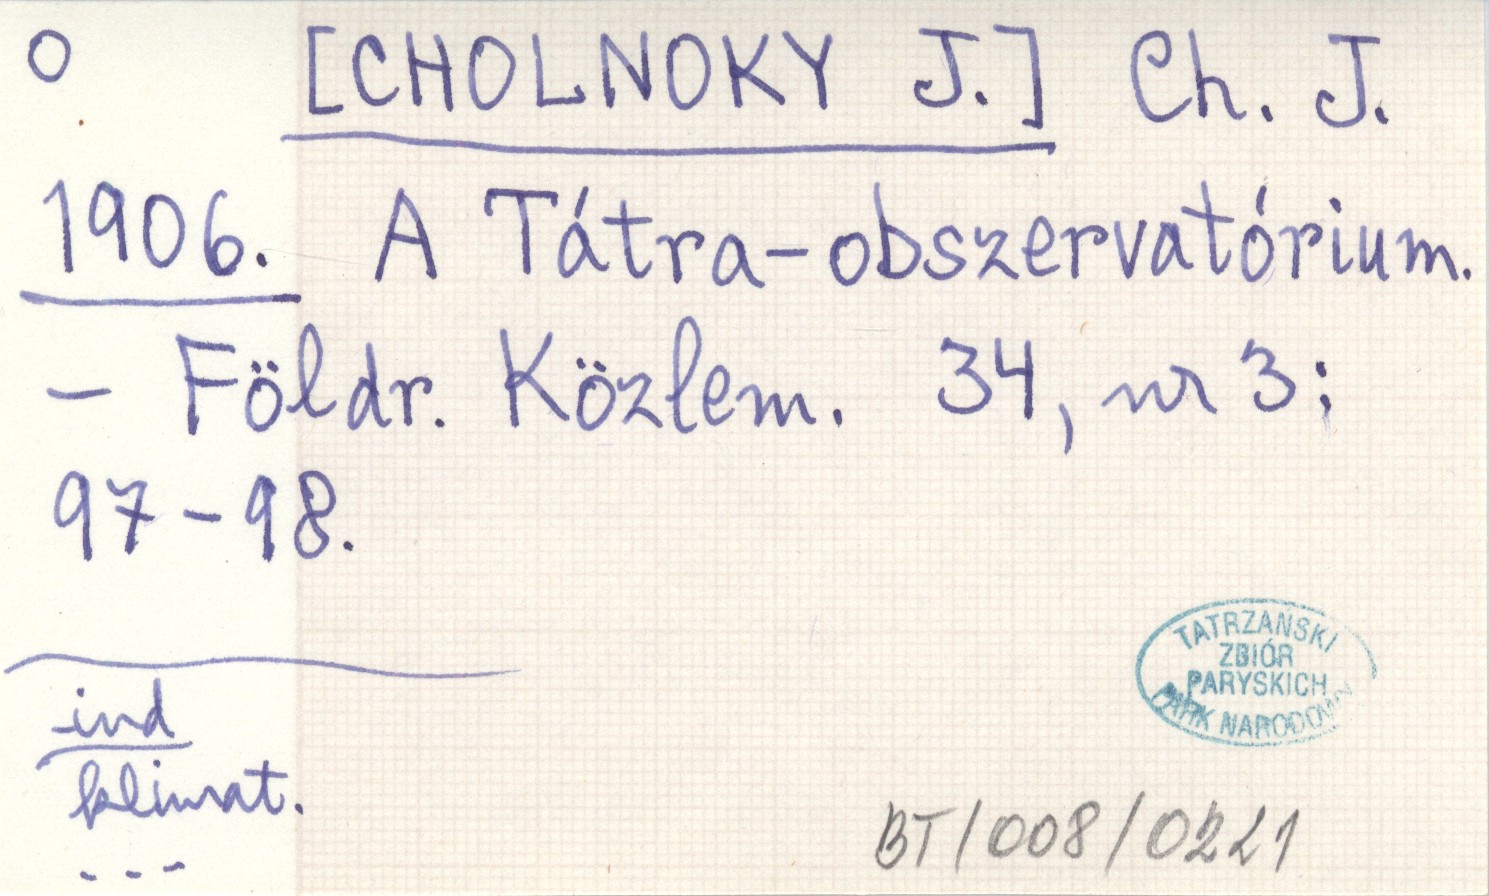 O [CHOLNOKY J.] Ch. J.
1906. A Tátra-obszervatórium.
- Földr. Közlem. 34, nr 3;
97-98.
ind
klimat.
---
TATRZAŃSKI
ZBIÓR
PARYSKICH
PARK NARODOWY
BT/008/0221